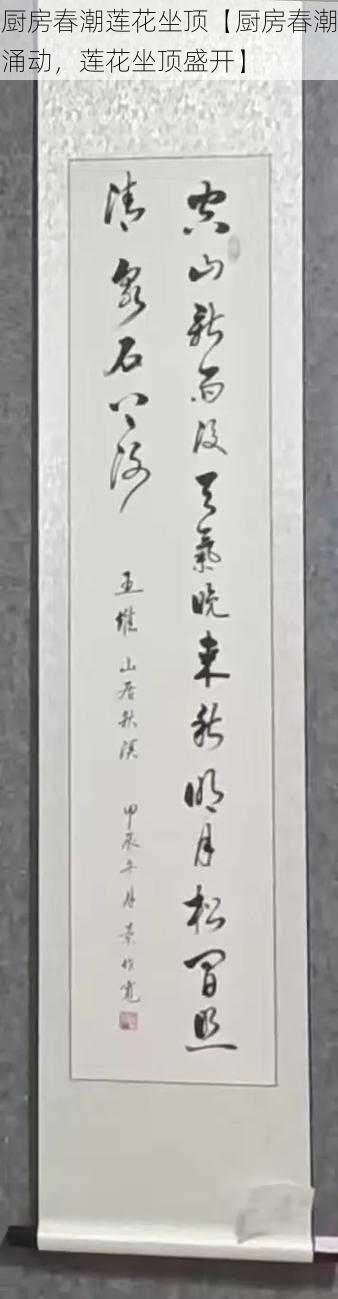 厨房春潮莲花坐顶【厨房春潮
涌动，莲花坐顶盛开】
空山新雨后天气晚来秋明月松间照
清泉石上流
王维 山居秋暝 甲辰年月